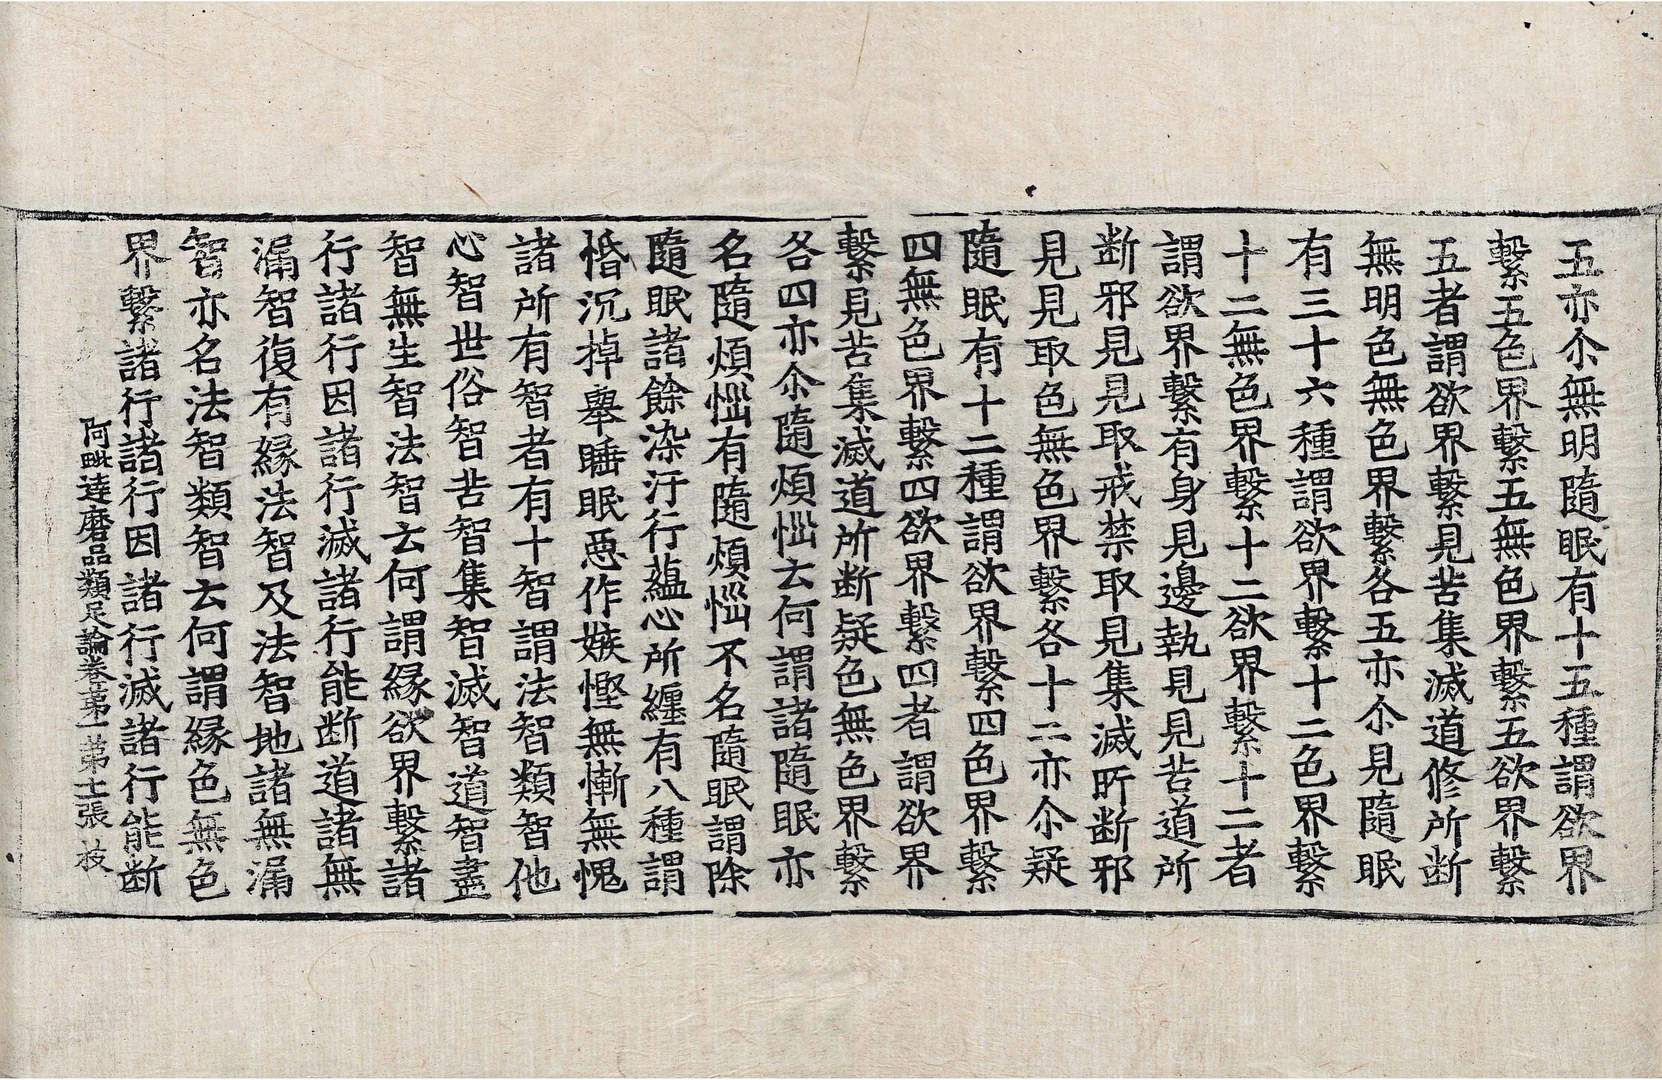 五亦尒無明隨眠有十五種謂欲界
繫五色界繫五無色界繫五欲界繫
五者謂欲界繫見苦集滅道修所断
無明色無色界繫各五亦尒見隨眠
有三十六種謂欲界繫十二色界繫
十二無色界繫十二欲界繫十二者
謂欲界繫有身見邊執見見苦道所
断邪見見取戒禁取見集滅所断邪
見見取色無色界繫各十二亦尒疑
隨眠有十二種謂欲界繫四色界繫
四無色界繫四欲界繫四者謂欲界
繫見苦集滅道所断疑色無色界繫
各四亦尒隨煩惱云何謂諸隨眠亦
名隨煩惱有隨煩惱不名隨眠謂除
隨眠諸餘染汙行蘊心所纏有八種謂
惛沉掉舉睡眠惡作嫉慳無慚無愧
諸所有智者有十智謂法智類智他
心智世俗智苦智集智滅智道智盡
智無生智法智云何謂緣欲界繫諸
行諸行因諸行滅諸行能断道諸無
漏智復有緣法智及法智地諸無漏
智亦名法智類智云何謂緣色無色
界繫諸行諸行因諸行滅諸行能断
阿毗達磨品類足論卷苐一 苐十二張 枝